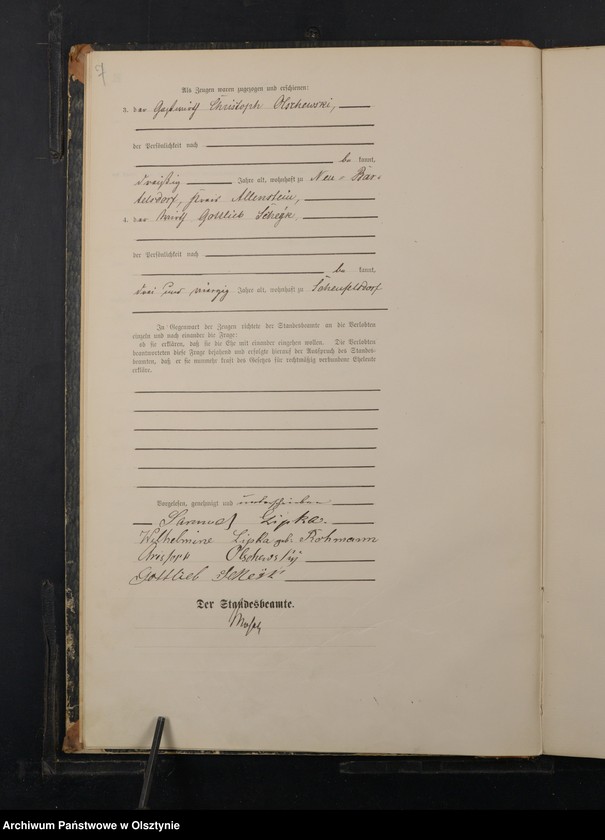 7
Als Zeugen waren zugezogen und erschienen:
3. der Gastwirth Christoph Olschewski,
der Persönlichkeit nach
be kannt,
dreißig Jahre alt, wohnhaft zu Neu-Bar-
telsdorf, Kreis Allenstein,
4. der Wirth Gottlieb
der Persönlichkeit nach
be kannt,
drei und vierzig Jahre alt, wohnhaft zu
In Gegenwart der Zeugen richtete der Standesbeamte an die Verlobten
einzeln und nach einander die Frage:
ob sie erklären, daß sie die Ehe mit einander eingehen wollen. Die Verlobten
beantworteten diese Frage bejahend und erfolgte hierauf der Ausspruch des Standes-
beamten, daß er sie nunmehr kraft des Gesetzes für rechtmäßig verbundene Eheleute
erkläre.
Vorgelesen, genehmigt und unterschrieben
Samuel Lipka.
Wilhelmine Lipka geb. Frohmann
Olschewsky
Gottlieb
Der Standesbeamte.
Archiwum Państwowe w Olsztynie